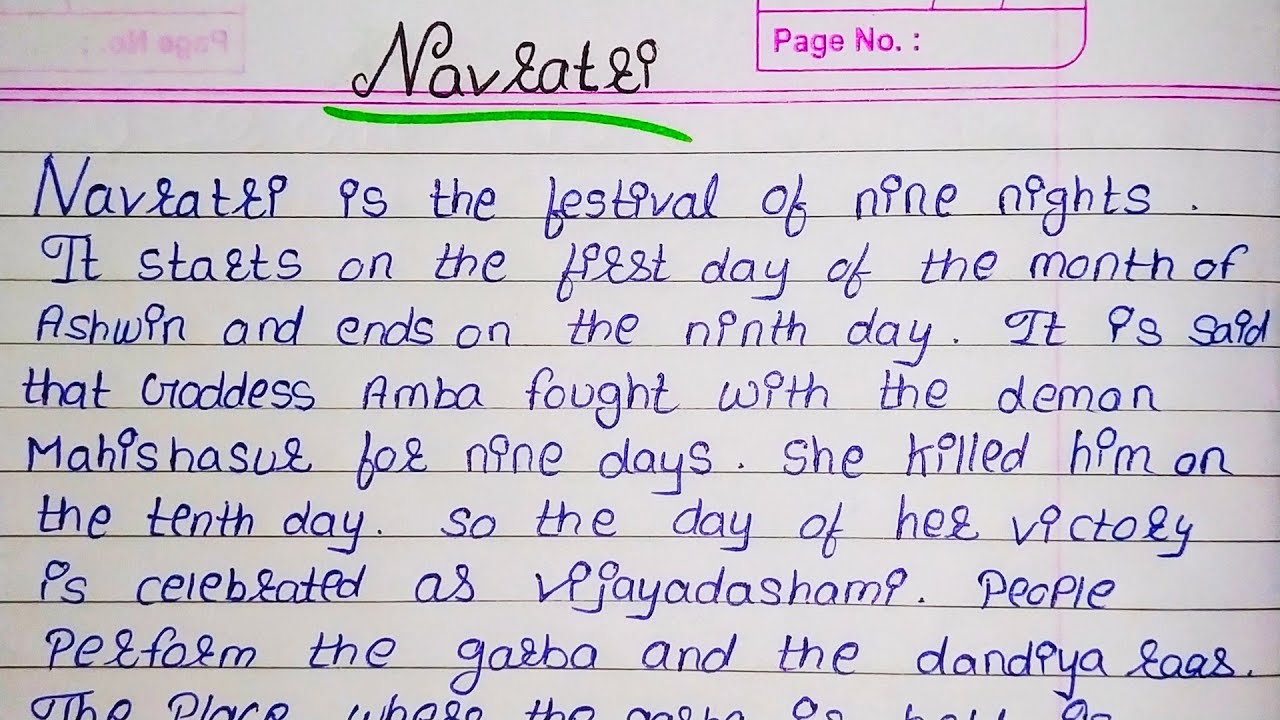 Page No. :
Navratri
Navratri is the festival of nine nights.
It starts on the first day of the month of
Ashwin and ends on the ninth day. It is said
that Goddess Amba fought with the deman
Mahishasur for nine days. She killed him on
the tenth day. So the day of her victory
is celebrated as vijayadashami. People
Perform the garba and the dandiya raas.
The Place where the garba is held is